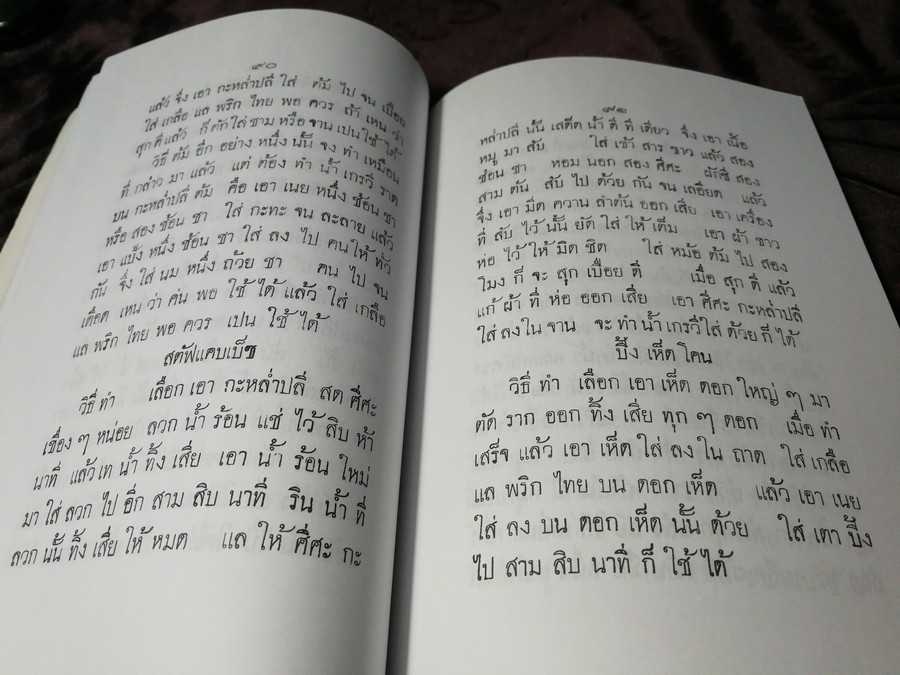 ๙๐
แล้ว จึ่ง เอา กะหล่ำปลี ใส่ ต้ม ไป จน เปื่อย
ใส่ เกลือ แล พริก ไทย พอ ควร ถ้า เหน ว่า
สุก ดี แล้ว ก็ ตัก ใส่ ชาม หรือ จาน เปน ใช้ ได้
วิธี ต้ม อีก อย่าง หนึ่ง นั้น จง ทำ เหมือน
ที่ กล่าว มา แล้ว แต่ ต้อง ทำ น้ำ เกรวี ราด
บน กะหล่ำปลี ต้ม คือ เอา เนย หนึ่ง ช้อน ชา
หรือ สอง ช้อน ชา ใส่ กะทะ จน ละลาย แล้ว
เอา แป้ง หนึ่ง ช้อน ชา ใส่ ลง ไป คนให้ ทั่ว
กัน จึ่ง ใส่ นม หนึ่ง ถ้วย ชา คน ไป จน
เดือด เหน ว่า ค่น พอ ใช้ ได้ แล้ว ใส่ เกลือ
แล พริก ไทย พอ ควร เปน ใช้ ได้
สตัฟแคบเบ็ช
วิธี ทำ เลือก เอา กะหล่ำปลี สด ศีศะ
เขื่อง ๆ หน่อย ลวก น้ำ ร้อน แช่ ไว้ สิบ ห้า
นาที แล้ว เท น้ำ ทิ้ง เสีย เอา น้ำ ร้อน ใหม่
มา ใส่ ลวก ไป อีก สาม สิบ นาที ริน น้ำ ที่
ลวก นั้น ทิ้ง เสีย ให้ หมด แล ให้ ศีศะ กะ
๙๑
หล่ำปลี นั้น เสด็ด น้ำ ดี ที เดียว จึ่ง เอา เนื้อ
หมู มา สับ ใส่ เข้า สาร ขาว แล้ว สอง
ช้อน ชา หอม นอก สอง ศีศะ ผักชี สอง
สาม ต้น สับ ไป ด้วย กัน จน เลอียด แล้ว
จึ่ง เอา มีด ควาน ลำต้น ออก เสีย เอา เครื่อง
ที่ สับ ไว้ นั้น ยัด ใส่ ให้ เต็ม เอา ผ้า ขาว
ห่อ ไว้ ให้ มิด ชิด ใส่ หม้อ ต้ม ไป สอง
โมง ก็ จะ สุก เปื่อย ดี เมื่อ สุก ดี แล้ว
แก้ ผ้า ที่ ห่อ ออก เสีย เอา ศีศะ กะหล่ำปลี
ใส่ ลงใน จาน จะ ทำ น้ำ เกรวีใส่ ด้วย ก็ ได้
ปิ้ง เห็ด โคน
วิธี ทำ เลือก เอา เห็ด ดอก ใหญ่ ๆ มา
ตัด ราก ออก ทิ้ง เสีย ทุก ๆ ดอก เมื่อ ทำ
เสร็จ แล้ว เอา เห็ด ใส่ ลง ใน ถาด ใส่ เกลือ
แล พริก ไทย บน ดอก เห็ด แล้ว เอา เนย
ใส่ ลง บน ดอก เห็ด นั้น ด้วย ใส่ เตา ปิ้ง
ไป สาม สิบ นาที ก็ ใช้ ได้